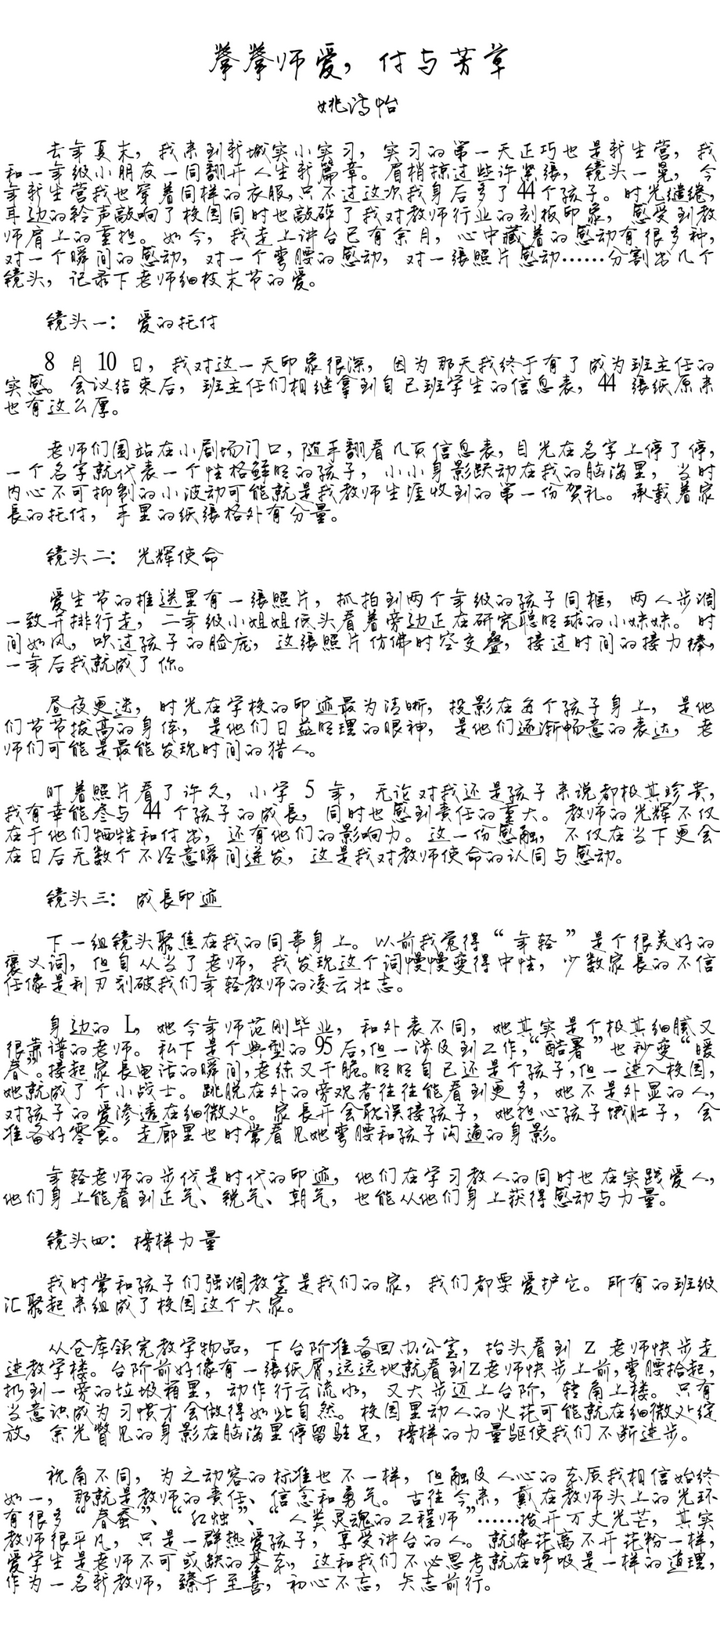 拳拳师爱，付与芳草
姚涛怡
去年夏末，我来到新城实小实习，实习的第一天正巧也是新生营，我
和一年级小朋友一同翻开人生新篇章。眉梢掠过些许紧张，镜头一晃，今
年新生营我也穿着同样的衣服，只不过这次我身后多了44个孩子。时光缱绻，
耳边的铃声敲响了校园同时也敲碎了我对教师行业的刻板印象，感受到教
师肩上的重担。如今，我走上讲台已有余月，心中藏着的感动有很多种，
对一个瞬间的感动，对一个弯腰的感动，对一张照片感动……分割出几个
镜头，记录下老师细枝末节的爱。
镜头一：爱的托付
8月10日，我对这一天印象很深，因为那天我终于有了成为班主任的
实感。会议结束后，班主任们相继拿到自己班学生的信息表，44张纸原来
也有这么厚。
老师们围站在小剧场门口，随手翻看几页信息表，目光在名字上停了停，
一个名字就代表一个性格鲜明的孩子，小小身影跃动在我的脑海里，当时
内心不可抑制的小波动可能就是我教师生涯收到的第一份贺礼。承载着家
长的托付，手里的纸张格外有分量。
镜头二：光辉使命
爱生节的推送里有一张照片，抓拍到两个年级的孩子同框，两人步调
一致并排行走，二年级小姐姐低头看着旁边正在研究聪明球的小妹妹。时
间如风，吹过孩子的脸庞，这张照片仿佛时空交叠，接过时间的接力棒，
一年后我就成了你。
昼夜更迭，时光在学校的印迹最为清晰，投影在每个孩子身上，是他
们节节拔高的身体，是他们日益明理的眼神，是他们逐渐畅意的表达，老
师们可能是最能发现时间的猎人。
盯着照片看了许久，小学5年，无论对我还是孩子来说都极其珍贵，
我有幸能参与44个孩子的成长，同时也感到责任的重大。教师的光辉不仅
在于他们牺牲和付出，还有他们的影响力。这一份感触，不仅在当下更会
在日后无数个不经意瞬间迸发，这是我对教师使命的认同与感动。
镜头三：成长印迹
下一组镜头聚焦在我的同事身上。以前我觉得“年轻”是个很美好的
褒义词，但自从当了老师，我发现这个词慢慢变得中性，少数家长的不信
任像是利刃刻破我们年轻教师的凌云壮志。
身边的L，她今年师范刚毕业，和外表不同，她其实是个极其细腻又
很靠谱的老师。私下是个典型的95后，但一涉及到工作，“酷署”也秒变“暖
春”。接起家长电话的瞬间，老练又干脆。明明自己还是个孩子，但一进入校园，
她就成了个小战士。跳脱在外的旁观者往往能看到更多，她不是外显的人，
对孩子的爱渗透在细微处。家长开会耽误接孩子，她担心孩子饿肚子，会
准备好零食。走廊里也时常看见她弯腰和孩子沟通的身影。
年轻老师的步伐是时代的印迹，他们在学习教人的同时也在实践爱人，
他们身上能看到正气、锐气、朝气，也能从他们身上获得感动与力量。
镜头四：榜样力量
我时常和孩子们强调教室是我们的家，我们都要爱护它。所有的班级
汇聚起来组成了校园这个大家。
从仓库领完教学物品，下台阶准备回办公室，抬头看到Z老师快步走
进教学楼。台阶前好像有一张纸屑，远远地就看到Z老师快步上前，弯腰拾起，
扔到一旁的垃圾箱里，动作行云流水，又大步迈上台阶，转角上楼。只有
当意识成为习惯才会做得如此自然。校园里动人的火花可能就在细微处绽
放，余光瞥见的身影在脑海里停留驻足，榜样的力量驱使我们不断进步。
视角不同，为之动容的标准也不一样，但触及人心的本质我相信始终
如一，那就是教师的责任、信念和勇气。古往今来，戴在教师头上的光环
有很多“春蚕”、“红烛”、“人类灵魂的工程师”……拨开万丈光芒，其实
教师很平凡，只是一群热爱孩子，享受讲台的人。就像花离不开花粉一样，
爱学生是老师不可或缺的基本，这和我们不必思考就在呼吸是一样的道理，
作为一名新教师，臻于至善，初心不忘，矢志前行。